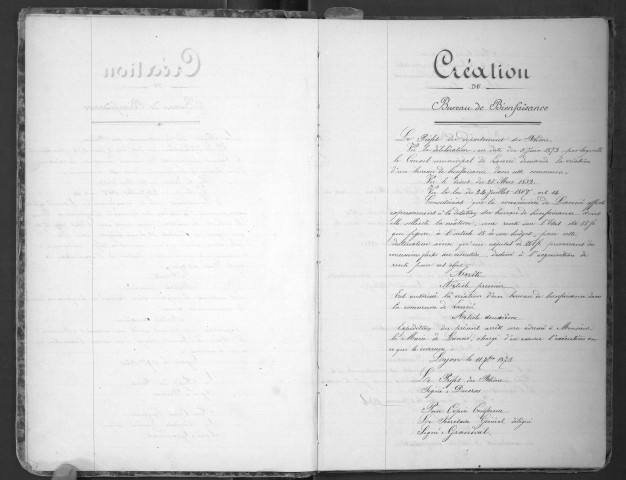 Création
DU
Bureau de Bienfaisance
Le Préfet du département du Rhône
Vu la délibération en date du 8 Juin 1873, par laquelle
le Conseil municipal de demande la création
d'un bureau de bienfaisance dans cette commune.
Vu le décret du 25 Mars 1852.
Vu la loi du 24 Juillet 1867, art 14
Considérant que la commune de affecte
expressément à la dotation du bureau de bienfaisance dont
elle sollicite la création, une rente sur l'Etat de
qui figure à l'article 13 de son budget, pour cette
destination ainsi qu'un capital de provenant de
destiné à l'acquisition de
rente pour cet objet
Arrête
Article premier
Est autorisée la création d'un bureau de bienfaisance dans
la commune de
Article deuxième
Expédition du présent arrêté sera adressé à Monsieur
le Maire de chargé d'en assurer l'exécution en
ce qui le concerne
Lyon le 1873
Le Préfet du Rhône
Signé: Ducros
Pour Copie Conforme
Le Secrétaire Général délégué
Signé